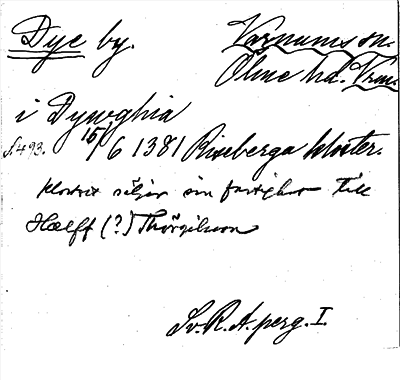 Dye by.
Varnums sn.
Ölme hd. Vrml.
i Dywghia
S. 493. 15/6 1381 Riseberga kloster.
klostret säljer sin fastighet till
Hælff (?) Thörgilsson
Sv. R. A. perg. I.